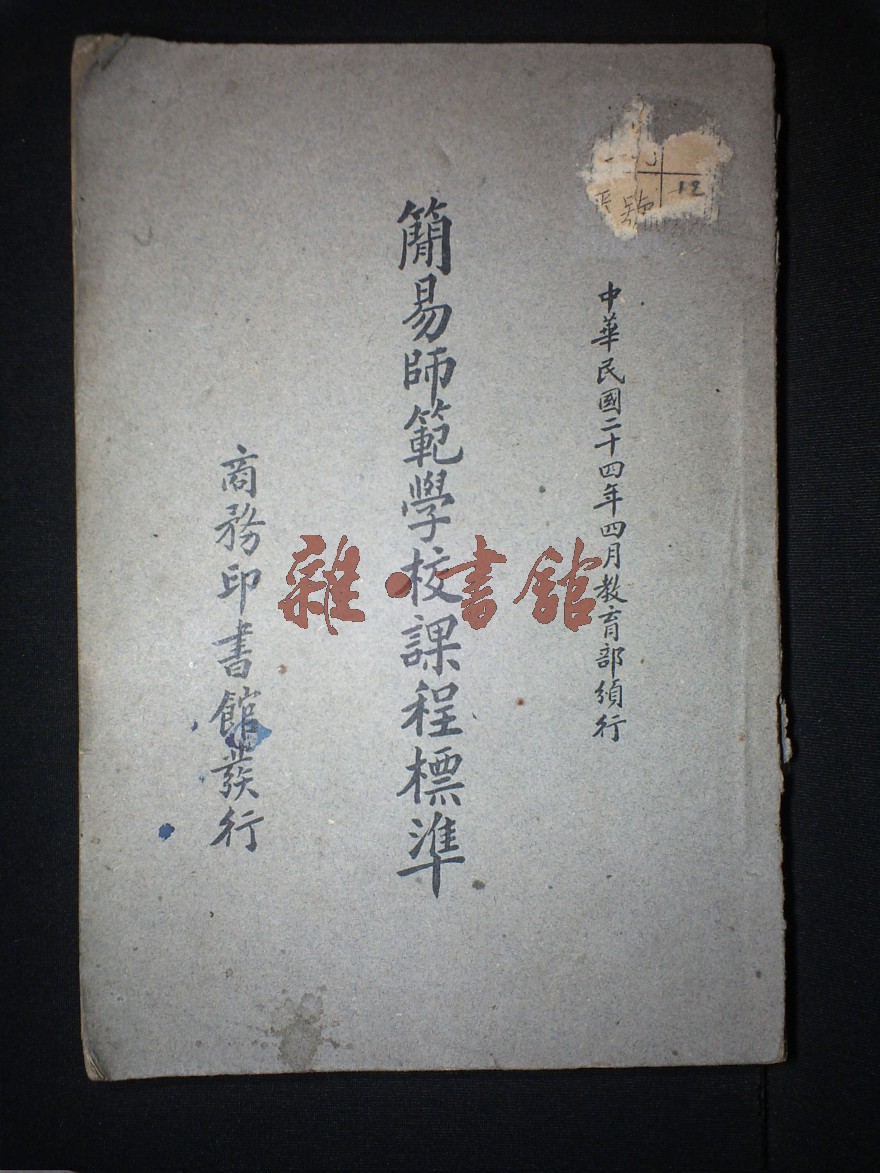 中華民國二十四年四月教育部頒行
簡易師範學校課程標準
商務印書館發行
雜·書館
12